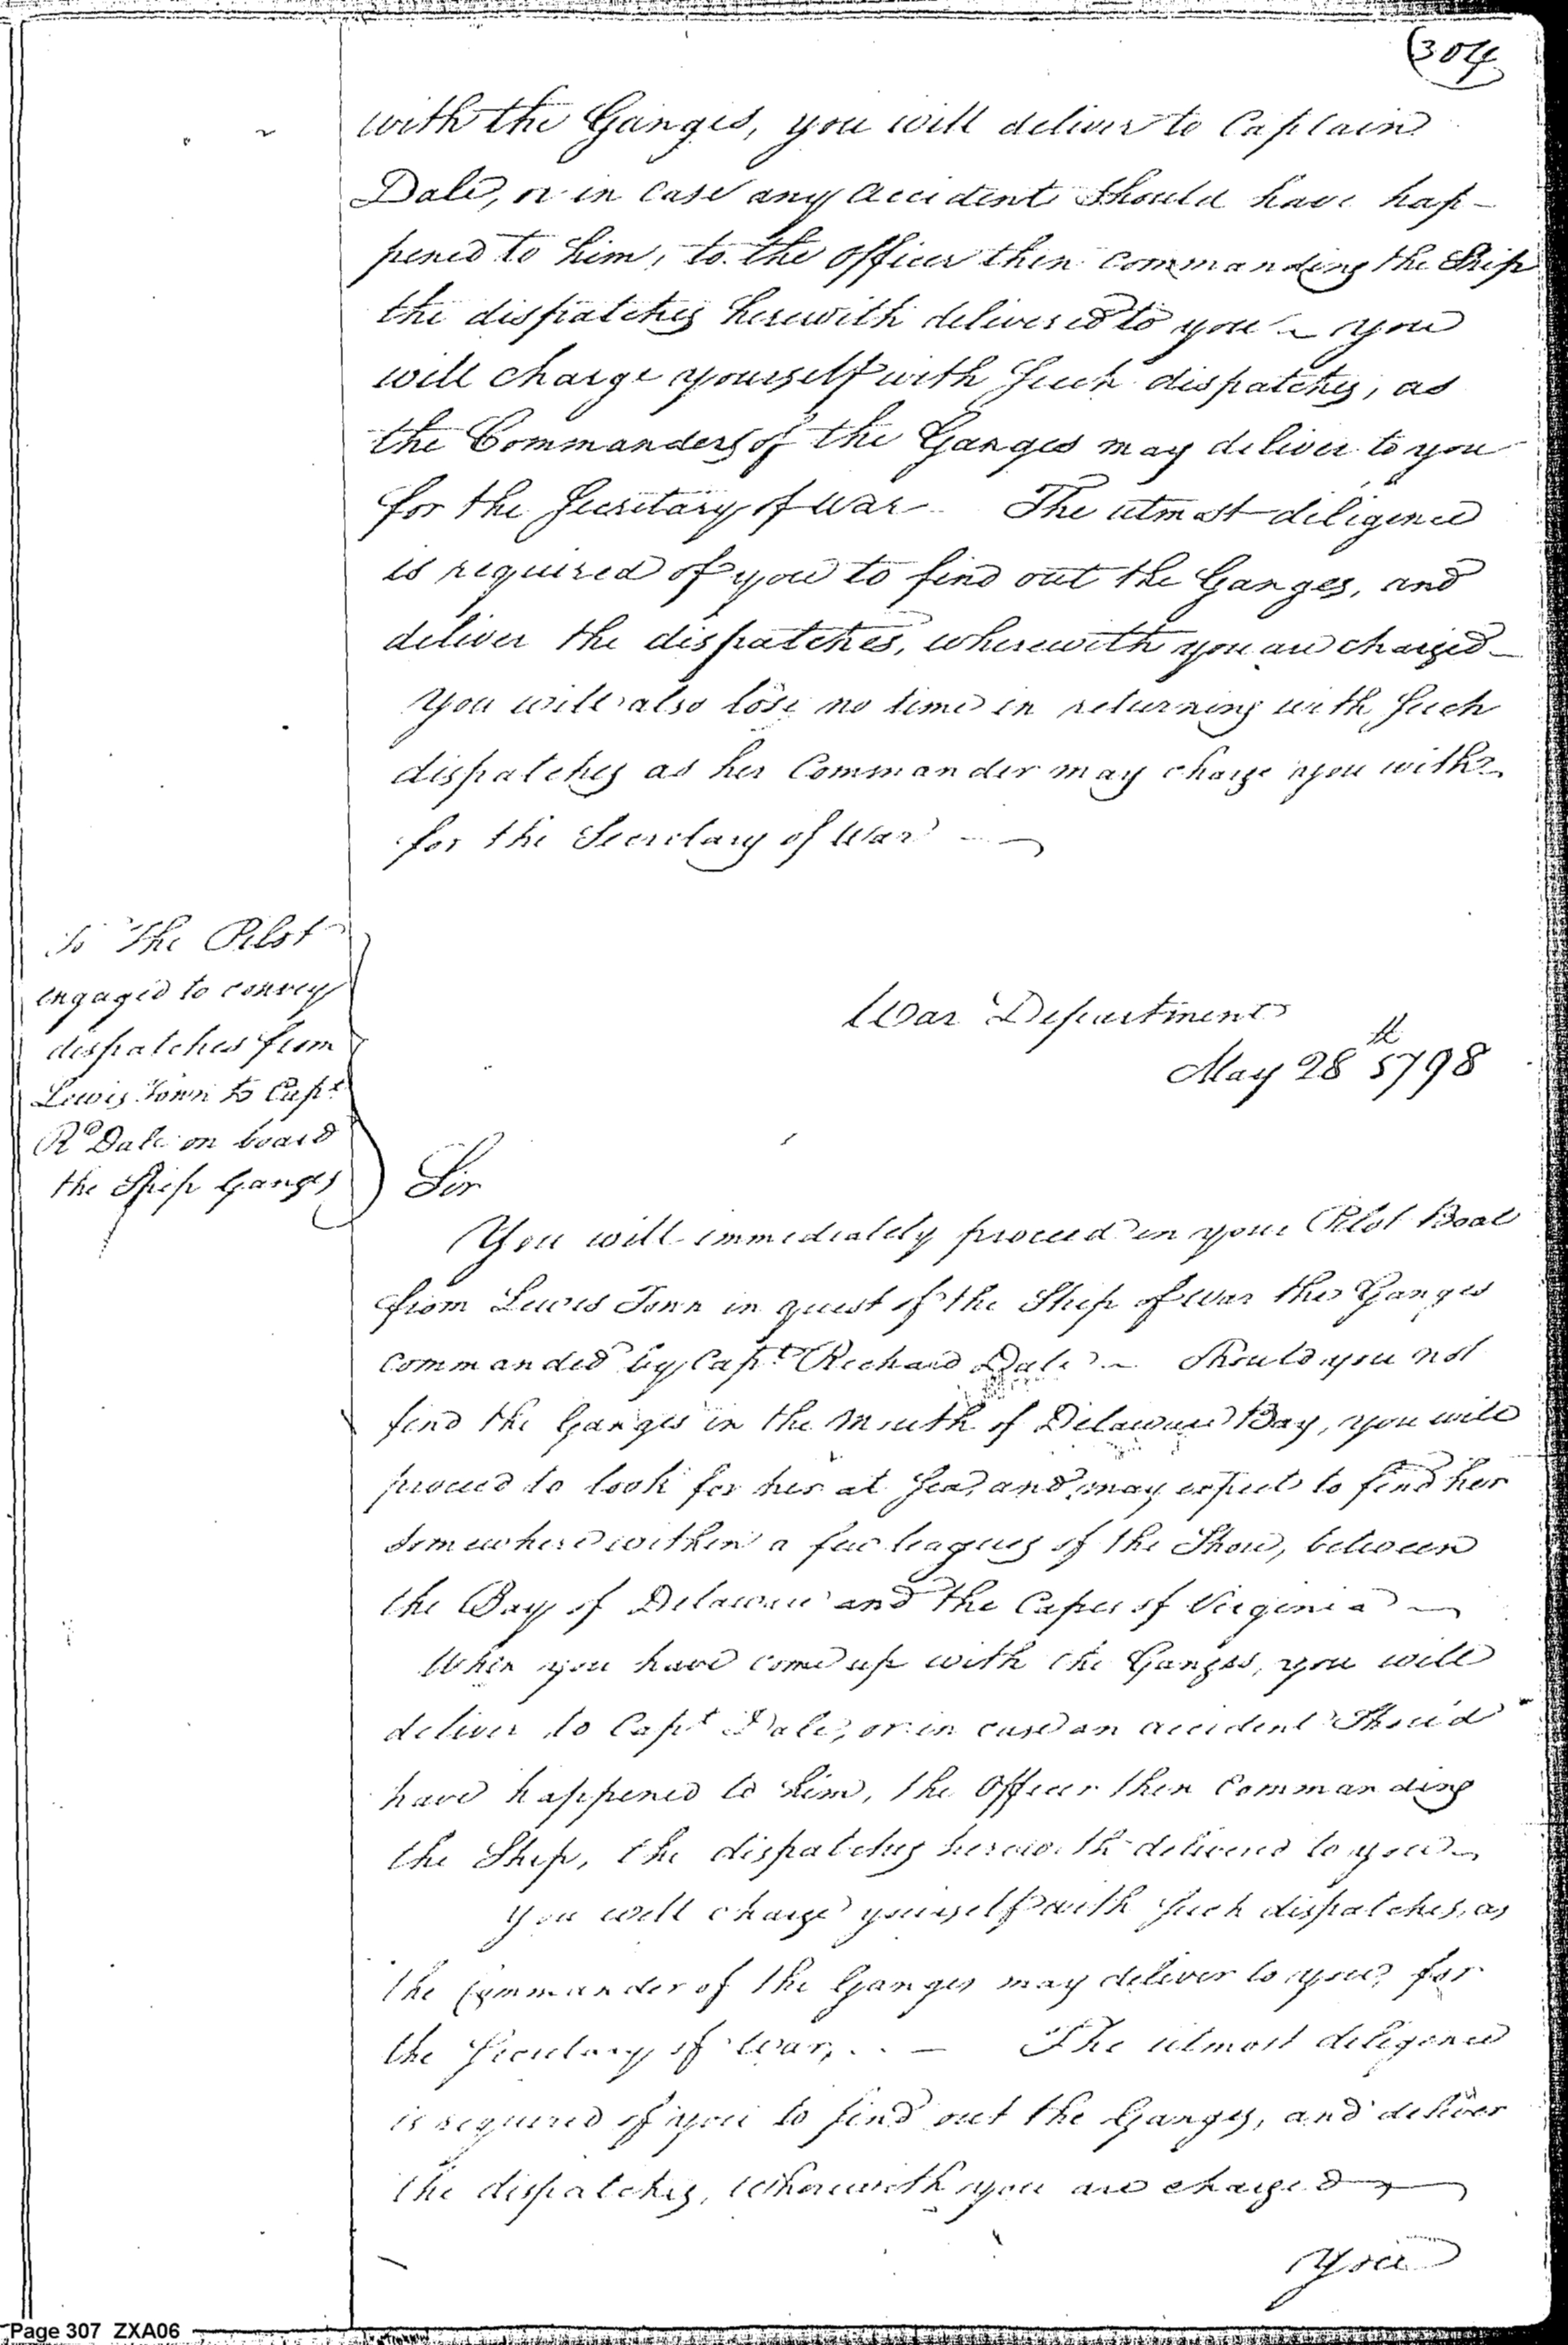 (304
with the Ganges, you will deliver to Captain
Dale, or in case any accident should have hap-
pened to him, to the officer then commanding the Ship
the dispatches herewith delivered to you ~ you
will charge yourself with such dispatches, as
the Commanders of the Ganges may deliver to you
for the Secretary of War. The utmost diligence
is required of you to find out the Ganges, and
deliver the dispatches, wherewith you are charged —
You will also lose no time in returning with such
dispatches as her Commander may charge you with
for the Secretary of War —
To The Pilot
engaged to convey
dispatches from
Lewis Town to Capt
Rd Dale on board
the Ship Ganges
War Department
May 28th 1798
Sir
You will immediately proceed in your Pilot Boat
from Lewis Town in quest of the Ship of war the Ganges
commanded by Capt. Richard Dale — Should you not
find the Ganges in the Mouth of Delaware Bay, you will
proceed to look for her at Sea, and may expect to find her
somewhere within a few leagues of the Shore, between
the Bay of Delaware and the Capes of Virginia —
When you have come up with the Ganges, you will
deliver to Capt Dale, or in case an accident Shou'd
have happened to him, the Officer then Commanding
the Ship, the dispatches herewith delivered to you —
You will charge yourself with such dispatches, as
the Commander of the Ganges may deliver to you, for
the Secretary of War, . . — The utmost diligence
is required of you to find out the Ganges, and deliver
the dispatches, wherewith you are charged —
You
Page 307 ZXA06